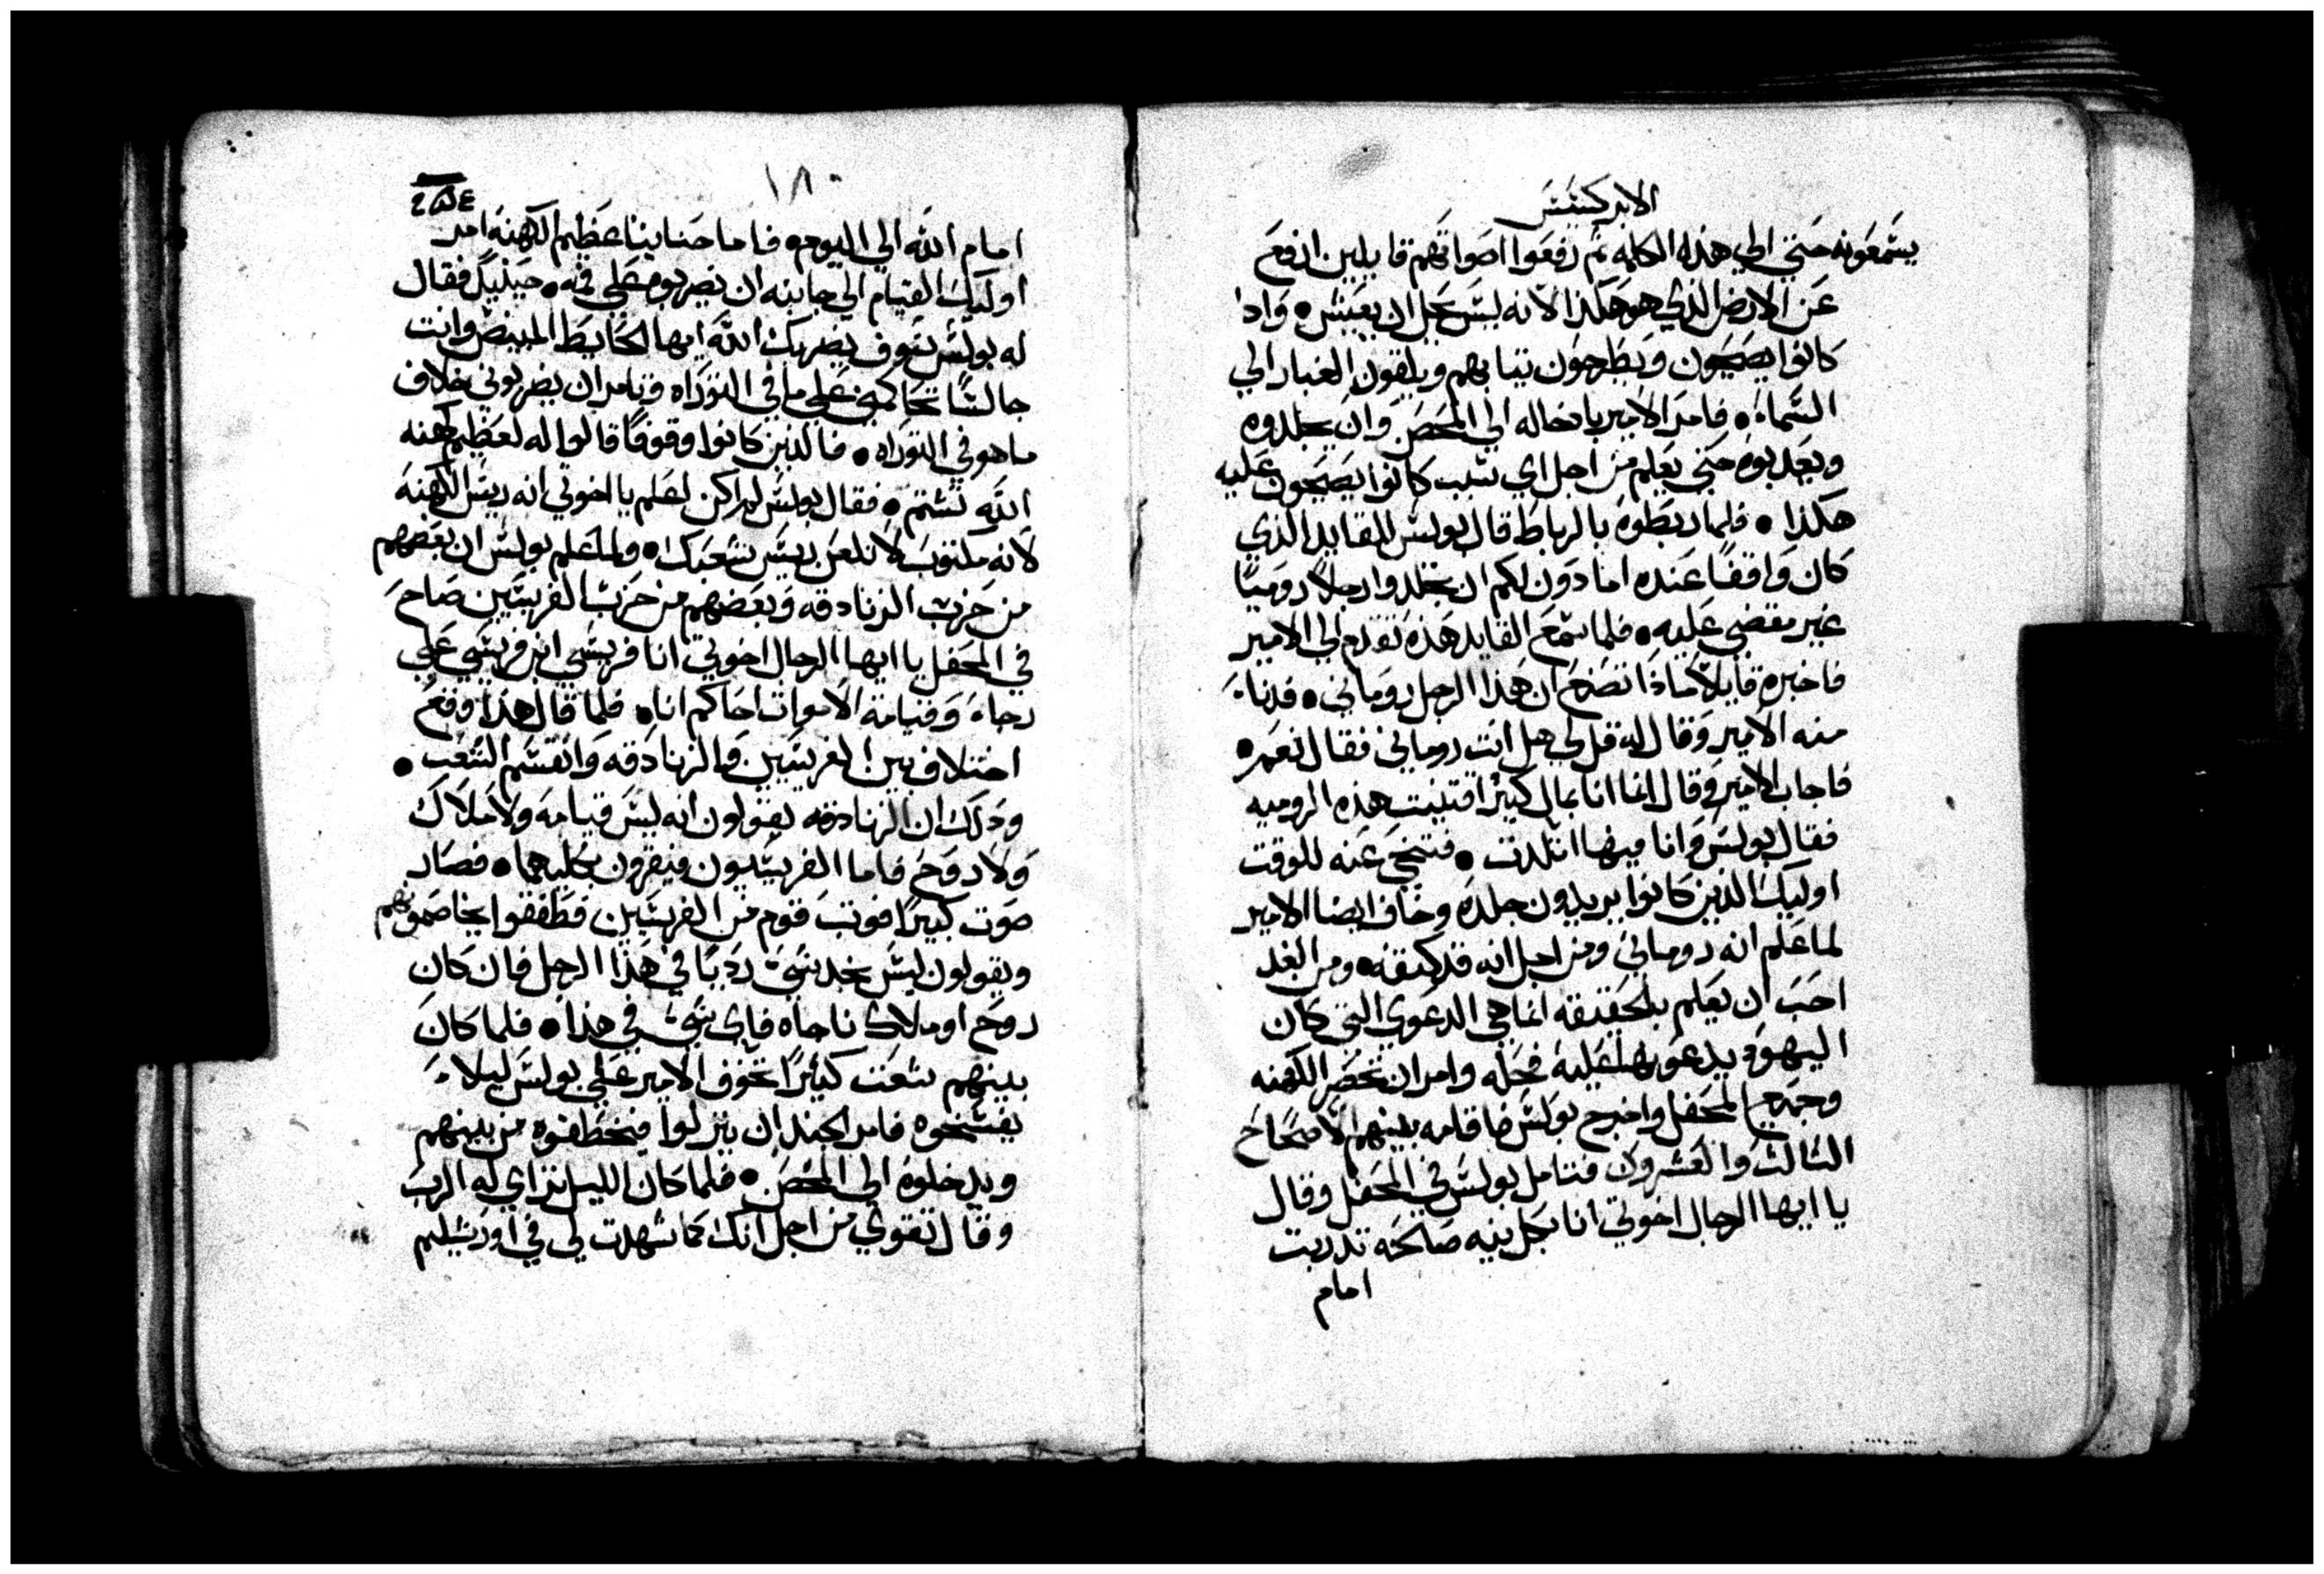 الابركسس
يسمعونه حتي الي هذه الكلمه ثم رفعوا اصواتهم قايلين ارفع
عن الارض الذي هو هكذا لانه ليس يحل ان يعيش • واذا
كانوا يصيحون ويطرحون تيابهم ويلقون الغبار الي
السماء • فامر الامير بادخاله الي المحصن وان يجلدوه
ويعذبوه حتي يعلم من اجل اي سبب كانوا يصيحون عليه
هكذا • فلما ربطوه بالرباط قال بولس للقايد الذي
كان واقفا عنده اماذون لكم ان تجلدوا رجلا روميا
غير مقضي عليه • فلما سمع القايد هذه تقدم الي الامير
فاخبره قايلا ماذا تصنع ان هذا الرجل روماني • فدناء
منه الامير وقال له قل لي هل انت روماني فقال نعم •
فاجاب الامير وقال انما انا بمال كثير اقتنيت هذه الروميه
فقال بولس وانا فيها اتلدت • فتنحي عنه للوقت
اوليك الذين كانوا يريدون جلده وخاف ايضا الامير
لما علم انه روماني ومن اجل انه قد كتفه • ومن الغد
احب ان يعلم بالحقيقه انما هي الدعوي التي كان
اليهود يدعوبها عليه فحله وامر ان تحضر الكهنه
وجميع المحفل واخرج بولس فاقامه بينهم الاصحاح
الثالث والعشرون فتامل بولس في المحفل وقال
يا ايها الرجال اخوتي انا بكل نيه صالحه تدربت
امام
١٨٠
امام الله الي اليوم • فاما حنانيا عظيم الكهنه امر
اوليك القيام الي جانبه ان يضربوه علي فمه • حينيذ فقال
له بولس سوف يضربك الله ايها الحايط المبيض وانت
جالسا تحاكمني علي ما في التوراه وتامر ان يضربوني خلاف
ما هو في التوراه • فالذين كانوا وقوفا قالوا له لعظيم كهنه
الله تشتم • فقال بولس لم اكن اعلم يا اخوتي انه ريس الكهنه
لانه مكتوب لا تلعن ريس شعبك • ولما علم بولس ان بعضهم
من حزب الزنادقه وبعضهم من حزب الفريسين صاح
في المحفل يا ايها الرجال اخوتي انا فريسي ابن فريسي علي
رجاء وقيامة الاموات احاكم انا • فلما قال هذا وقع
اختلاف بين الفريسين والزنادقه وانقسم الشعب •
وذلك ان الزنادقه يقولون انه ليس قيامه ولا ملاك
ولا روح فاما الفريسيون فيقرون بكليهما • فصار
صوت كبيرا فوتب قوم من الفريسين فطفقوا يخاصمونهم
ويقولون ليس نجد شي رديا في هذا الرجل فان كان
روح او ملاك ناجاه فاي شي في هذا • فلما كان
بينهم شعت كثيرا تخوف الامير علي بولس ليلاء
يفسخوه فامر الجند ان ينزلوا فيخطفوه من بينهم
ويدخلوه الي المحصن • فلما كان الليل تراي له الرب
وقال تقوي من اجل انك كما شهدت لي في اورشليم